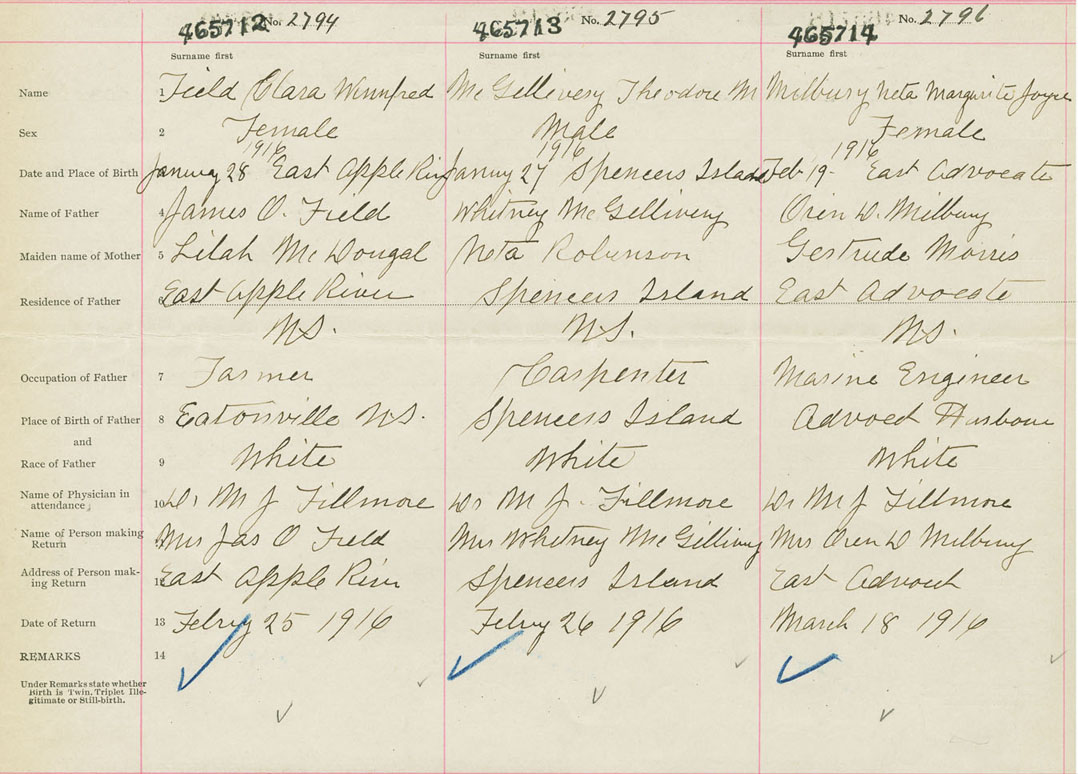 465712 No. 2794 465713 No. 2795 465714 No. 2796
Surname first Surname first Surname first
Name 1 Field Clara Winnfred Mc Gellivery Theodore M Milbury Neta Margurite Joyce
Sex 2 Female Male Female
1916 1916 1916
Date and Place of Birth January 28 East Apple River January 27 Spencers Island Feb 19- East Advocate
Name of Father 4 James O. Field Whitney Mc Gellivery Oren D. Milbury
Maiden name of Mother 5 Lilah Mc Dougal Neta Robinson Gertrude Morris
Residence of Father 6 East Apple River Spencers Island East Advocate
N.S. N.S. N.S.
Occupation of Father 7 Farmer Carpenter Marine Engineer
Place of Birth of Father 8 Eatonville N.S. Spencers Island Advocet Harbour
and
Race of Father 9 White White White
Name of Physician in
attendance 10 Dr M J Fillmore Dr M J. Fillmore Dr M J Fillmore
Name of Person making
Return Mrs Jas O Field Mrs Whitney Mc Gillivry Mrs Oren D Milbury
Address of Person mak-
ing Return 12 East Apple River Spencers Island East Advocet
Date of Return 13 Febry 25 1916 Febry 26 1916 March 18 1916
REMARKS 14
Under Remarks state whether
Birth is Twin, Triplet Ille-
gitimate or Still-birth.